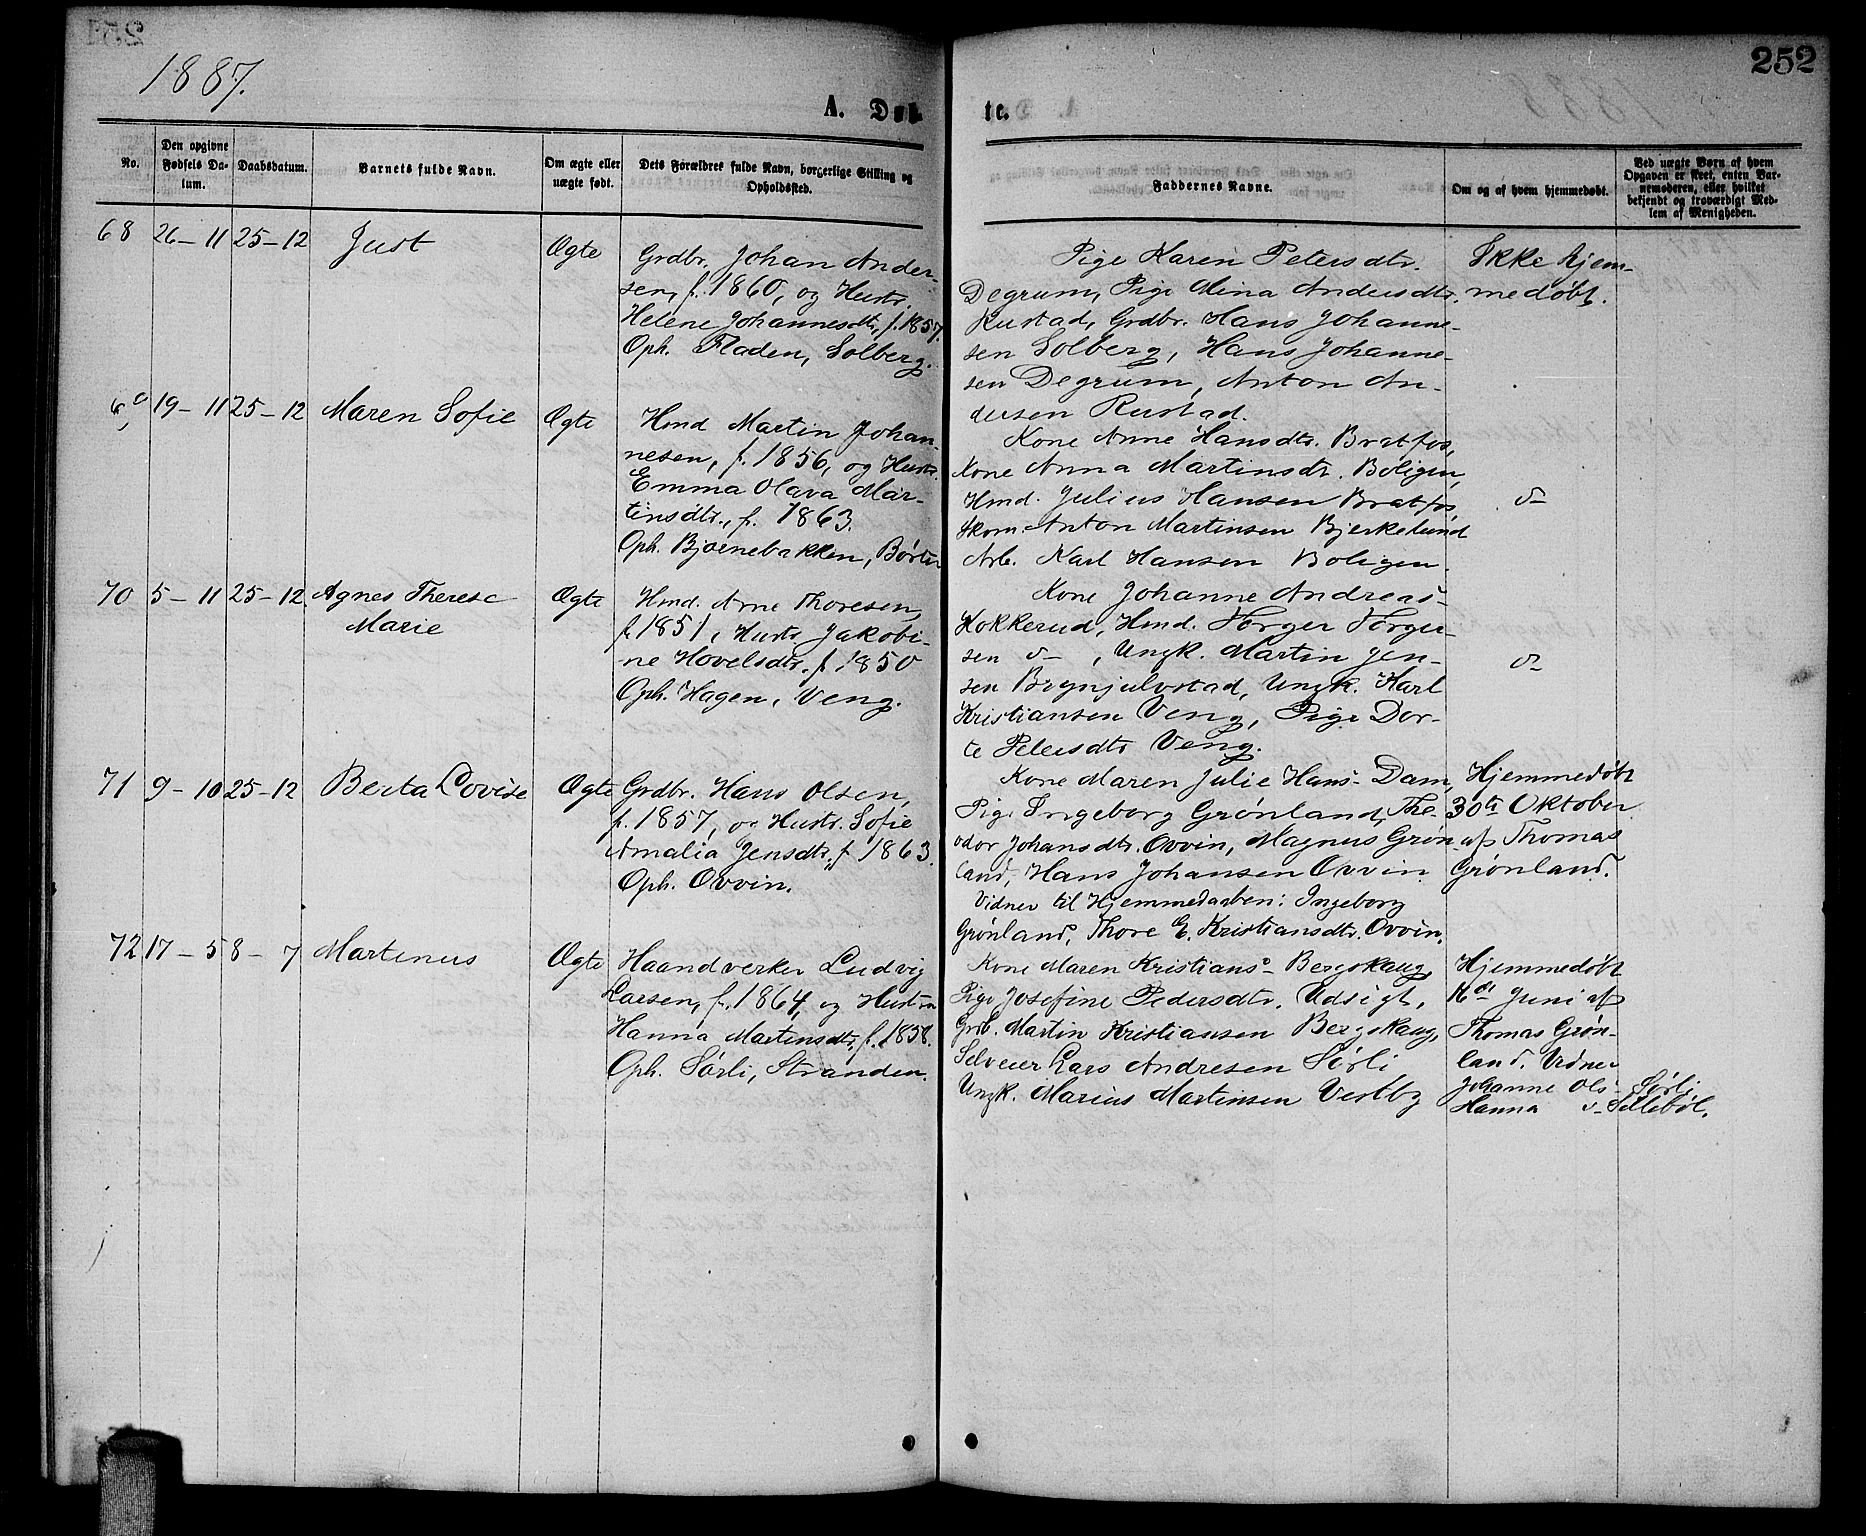 1887.
252
A. Døbte.
No.
Den opgivne Fødsels Datum.
Daabsdatum.
Barnets fulde Navn.
Om ægte eller uægte født.
Dets Forældres fulde Navn, borgerlige Stilling og Opholdssted.
Faddernes Navne.
Om og af hvem hjemmedøbt.
Ved uægte Børn af hvem Opgaven er skeet, enten Barnemoderen, eller hvilket bekjendt og troværdigt Medlem af Menigheden.
68 26-11 25-12 Just Ægte
Grdbr. Johan Ander-
sen, f. 1860, og Hustr.
Helene Johannesdtr, f. 1857.
Oph. Fladen, Solberg.
Pige Karen Petersdtr.
Degrum, Pige Mina Andersdtr.
Rustad, Grdbr. Hans Johanne-
sen Solberg, Hans Johanne-
sen Degrum, Anton An-
dersen Rustad.
Ikke hjem-
medøbt.
69 19-11 25-12 Maren Sofie Ægte
Hmd Martin Johan-
nesen, f. 1856, og Hustr.
Emma Olava Mar-
tinsdtr., f. 1863.
Oph. Bjørnebakken, Børter
Kone Anne Hansdtr. Bratfos,
Kone Anna Martinsdtr. Boligen,
Hmd. Julius Hansen Bratfos,
Skom. Anton Martinsen Bjerkelund
Arb. Karl Hansen Boligen.
d-
70 5-11 25-12 Agnes Therese
Marie
Ægte
Hmd. Arne Thoresen,
f. 1851, Hustr Jakobi-
ne Hovelsdtr. f. 1850
Oph. Hagen, Veng.
Kone Johanne Andreas-
Kokkerud, Hmd. Torger Torger-
sen d-, Ungk. Martin Jen-
sen Brynjulvstad, Ungk. Karl
Kristiansen Veng, Pige Dor-
te Petersdtr Veng.
d-
71 9-10 25-12 Berta Lovise Ægte
Grdbr. Hans Olsen,
f. 1857, og Hustr. Sofie
Amalia Jensdtr. f. 1863.
Oph. Ovvin.
Kone Maren Julie Hans- Dam,
Pige Ingeborg Grønland, The-
odor Johansdtr. Ovvin, Magnus Grøn-
land, Hans Johansen Ovvin
Vidner til Hjemmedaaben: Ingeborg
Grønland, Thore E. Kristiansdtr. Ovvin.
Hjemmedøbt
30te Oktober
af Thomas
Grønland.
72 17-5 8-7 Martinus Ægte
Haandverker Ludvig
Larsen, f. 1864, og Hustru
Hanna Martinsdtr, f. 1858.
Oph. Sørli, Stranden.
Kone Maren Kristians- Bergskaug,
Pige Josefine Pedersdtr. Udsigt,
Grb. Martin Kristiansen Bergskaug,
Selveier Lars Andresen Sørli
Ungk. Marius Martinsen Vestby
Hjemmedøbt
Juni af
Thomas Grøn-
land. Vidner
Johanne Ols- Sørli
Hanna d- Sillebøl.